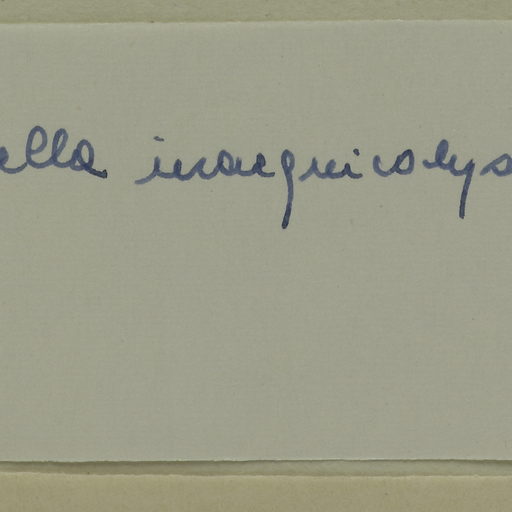 ella inaequicalys